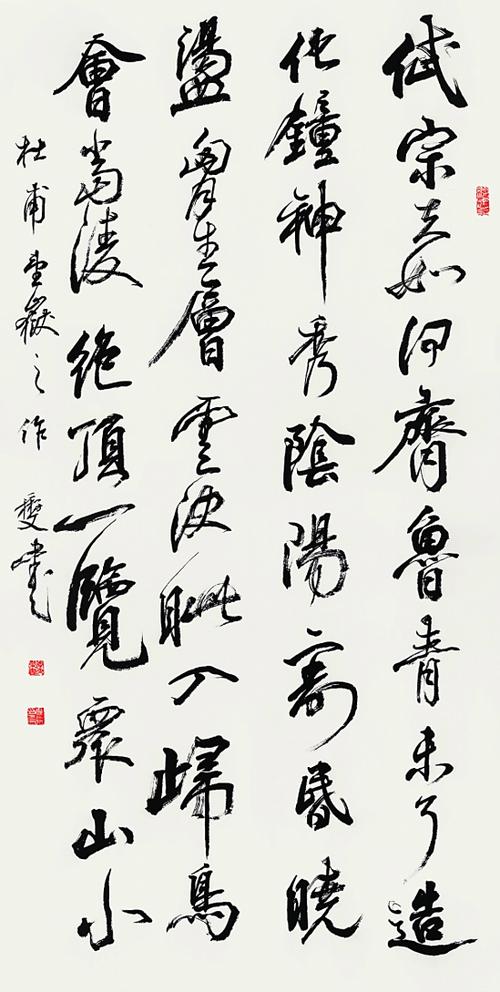 岱宗夫如何齊魯青未了造
化鐘神秀陰陽割昏曉
盪胷生層雲決眦入歸鳥
會當凌絕頂一覽眾山小
杜甫望嶽之作